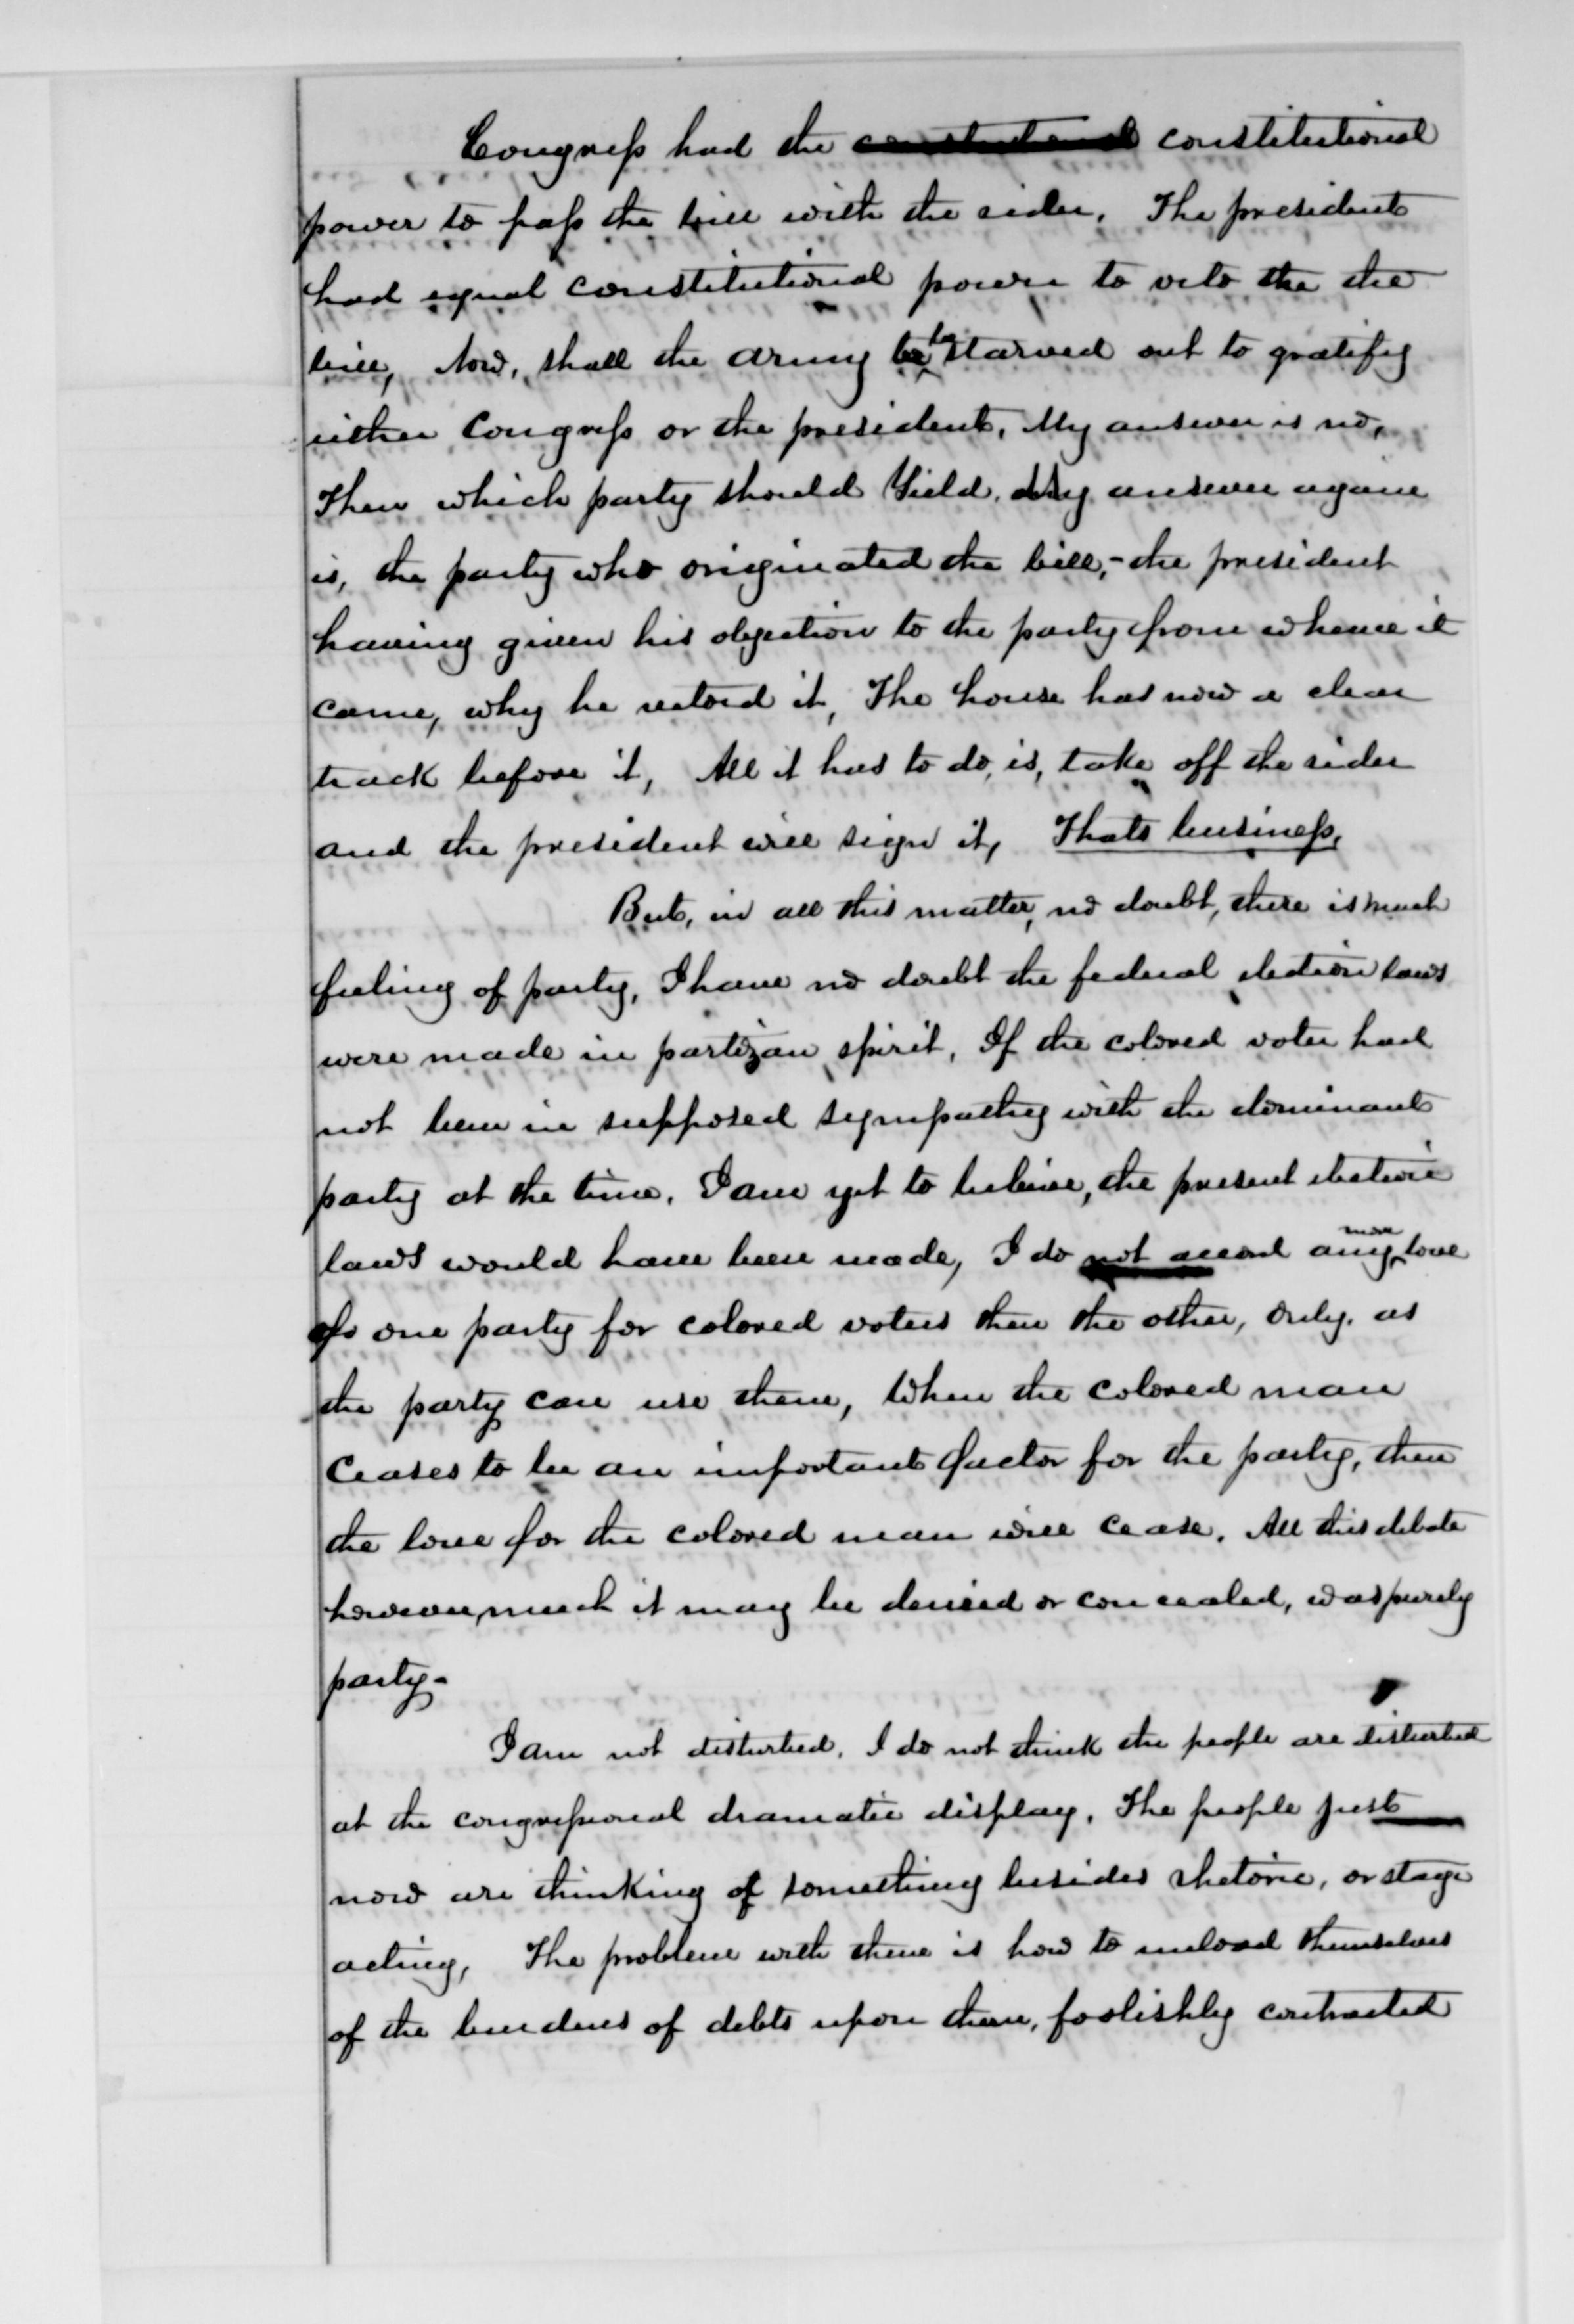 Congress had the constitutional constitutional
power to pass the bill with the rider. The president
had equal constitutional power to veto the the
bill, Now, shall the army be be starved out to gratify
either Congress or the president. My answer is no.
Then which party should Yield. My answer again
is, the party who originated the bill,- the president
having given his objection to the party from whence it
came, why he vetoed it, The house has now a clear
track before it, All it has to do, is, take off the rider
and the president will sign it, Thats business.
But, in all this matter, no doubt, there is much
feeling of party, I have no doubt the federal election laws
were made in partizan spirit. If the colored voter had
not been in supposed sympathy with the dominant
party at the time. I am yet to believe, the present election
laws would have been made, I do not accord any more love
of one party for colored voters then the other, only. as
the party can use them, When the colored man
Ceases to be an important factor for the party, then
the love for the colored man will cease. All this debate
however, much it may be denied or concealed, was purely
party-
I am not disturbed. I do not think the people are disturbed
at the congressional dramatic display. The people just
now are thinking of something besides rhetoric, or stage
acting, The problem with them is how to unload themselves
of the burdens of debts upon them, foolishly contracted